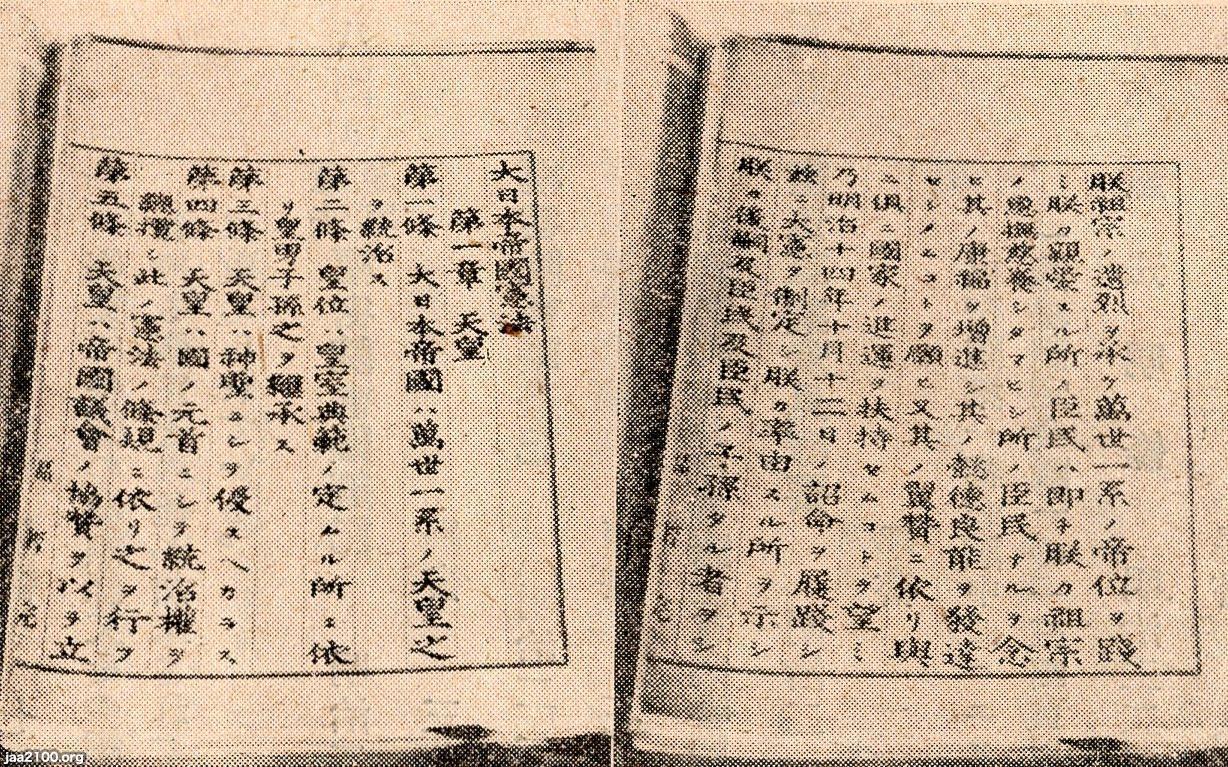 朕祖宗ノ遺烈ヲ承ケ萬世一系ノ帝位ヲ踐
ミ朕カ親愛スル所ノ臣民ハ即チ朕カ祖宗
ノ惠撫慈養シタマヒシ所ノ臣民ナルヲ念
ヒ其ノ康福ヲ增進シ其ノ懿德良能ヲ發達
セシメムコトヲ願ヒ又其ノ翼贊ニ依リ與
ニ俱ニ國家ノ進運ヲ扶持セムコトヲ望ミ
乃明治十四年十月十二日ノ詔命ヲ履踐シ
茲ニ大憲ヲ制定シ朕カ率由スル所ヲ示シ
朕カ後嗣及臣民及臣民ノ子孫タル者ヲシ
大日本帝國憲法
第一章 天皇
第一條 大日本帝國ハ萬世一系ノ天皇之
ヲ統治ス
第二條 皇位ハ皇室典範ノ定ムル所ニ依
リ皇男子孫之ヲ繼承ス
第三條 天皇ハ神聖ニシテ侵スヘカラス
第四條 天皇ハ國ノ元首ニシテ統治權ヲ
總攬シ此ノ憲法ノ條規ニ依リ之ヲ行フ
第五條 天皇ハ帝國議會ノ協贊ヲ以テ立
jaa2100.org